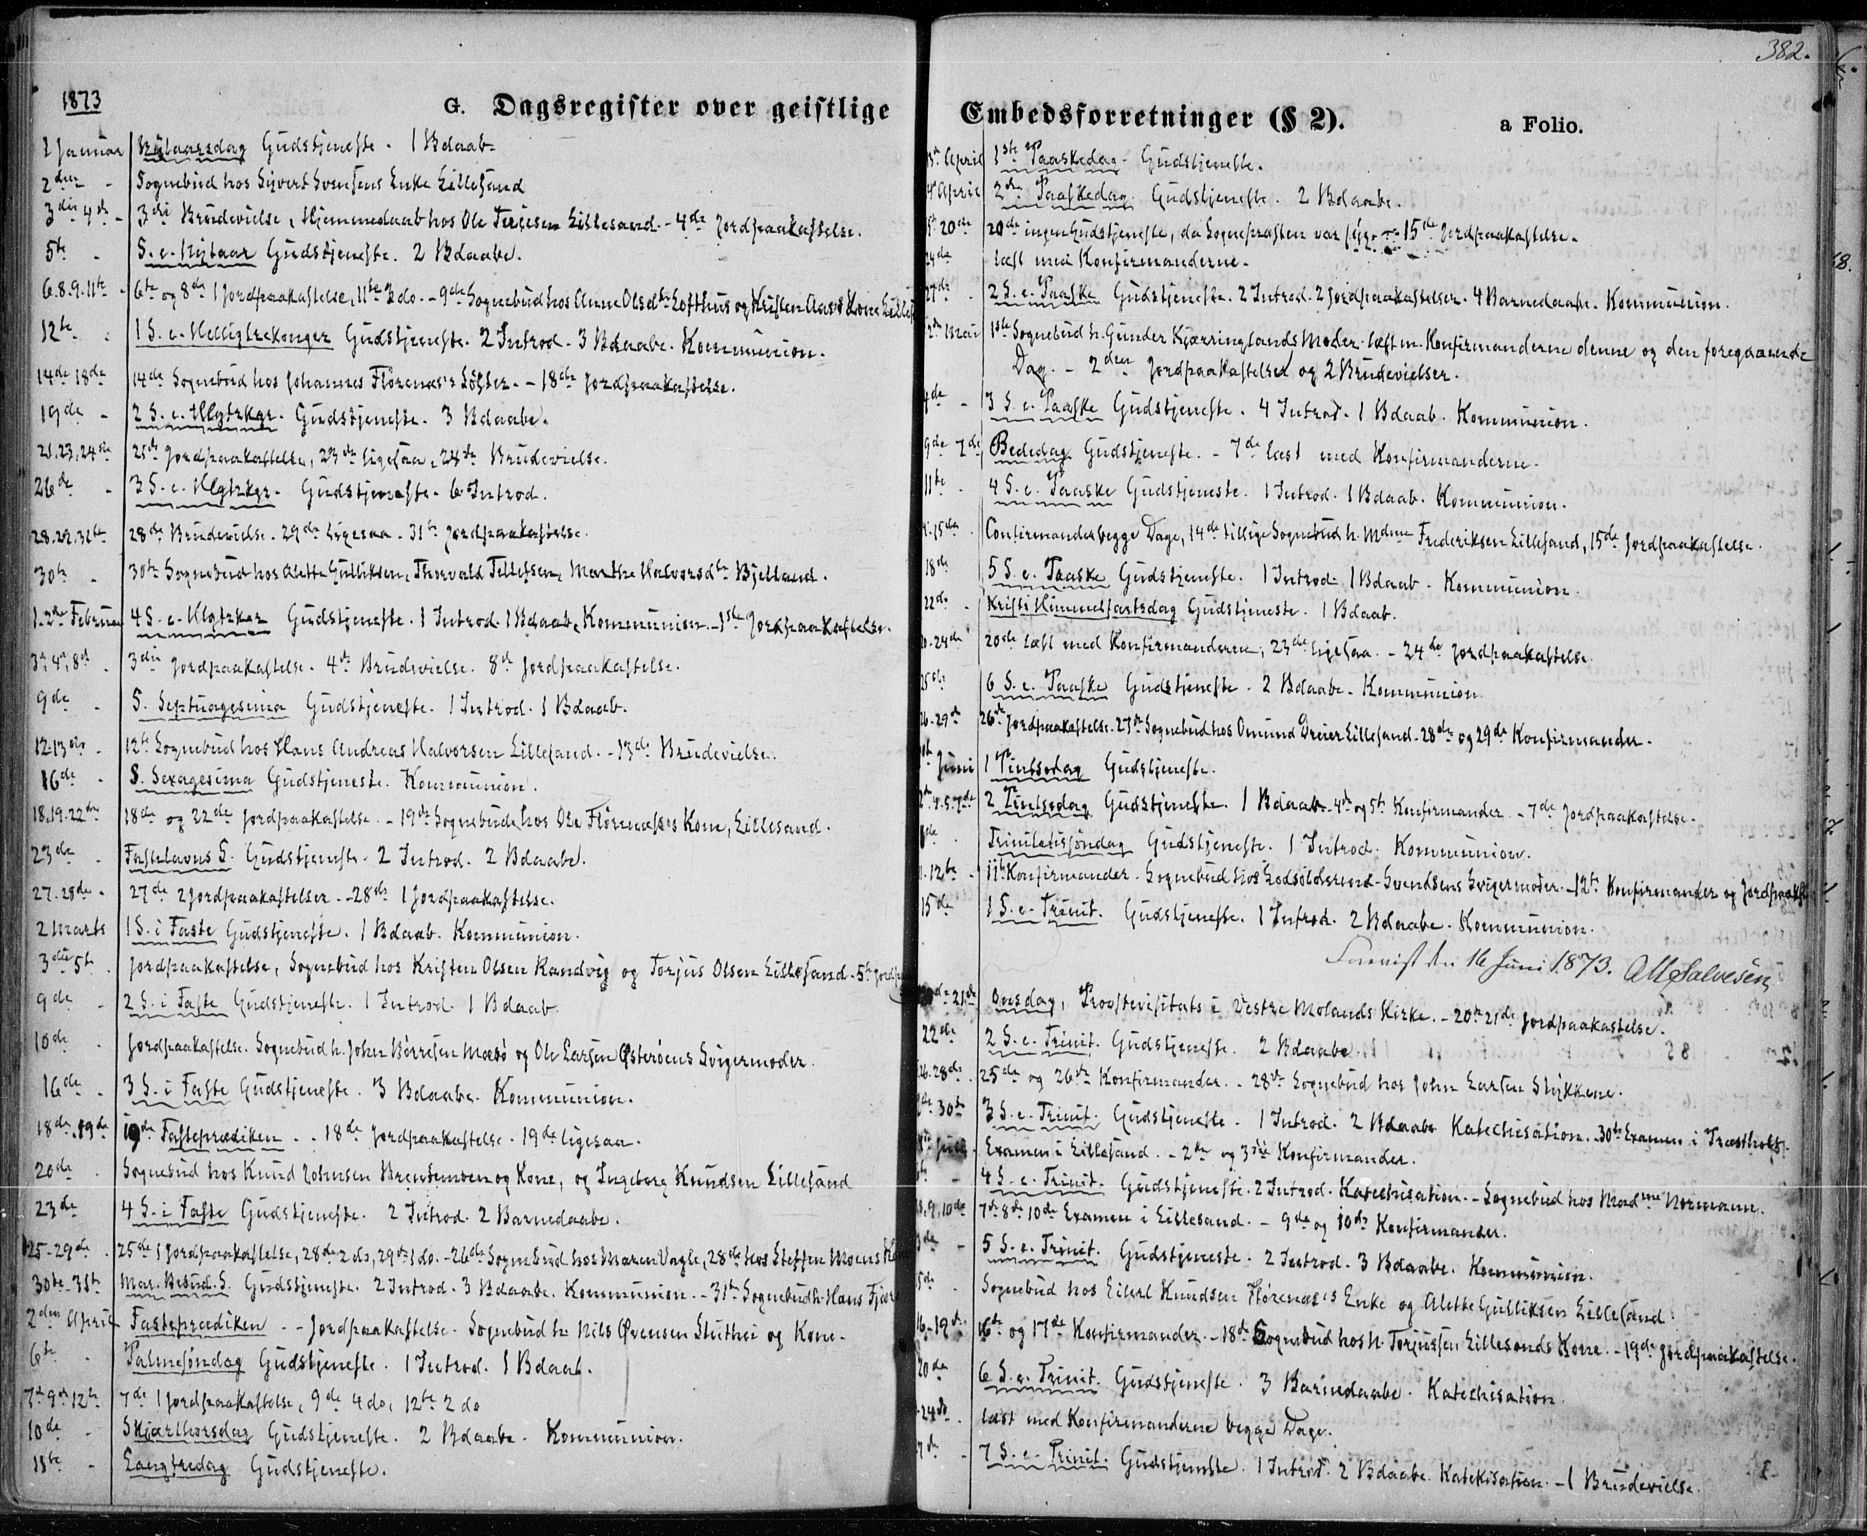 1873
G. Dagsregister over geistlige
1 Januar Nytaarsdag Gudstjeneste. 1 Bdaab.
2den - Sognebud hos Syvert Svensens Enke Lillesand
3die 4de - 3die Brudevielse, Hjemmedaab hos Ole Terjesen Lillesand - 4de Jordpaakastelse.
5te - S. e. Nytaar Gudstjeneste. 2 Bdaabe.
6.8.9.11te - 6te og 8de 1 Jordpaakastelse, 11te 2 do. - 9de Sognebud hos Anne Olsdtr Lofthus og Kristen Aas's Kone
12te - 1 S. e. Helligtrekonger Gudstjeneste. 2 Introd. 3 Bdaabe. Kommunion.
14de 18de 14de Sognebud hos Johannes Flörenæs's Söster. - 18de Jordpaakastelse.
19de - 2 S. e. Hlgtrkgr. Gudstjeneste. 3 Bdaabe.
21.23.24de 21de Jordpaakastelse, 23de ligesaa, 24de Brudevielse.
26de - 3 S. e. Hlgtrkgr. Gudstjeneste. 6 Introd.
28.29.31te 28de Brudevielse. 29de Ligesaa. 31te Jordpaakastelse.
30te - 30te Sognebud hos Alette Gulliksen, Thorvald Tellefsen, Marthe Halvorsdtr Bjelland.
1.2den Februar 4 S. e. Hlgtrkgr Gudstjeneste. 1 Introd. 1 Bdaab, Kommunion. - 1ste Jordpaakastelse.
3die, 4de, 8de - 3die Jordpaakastelse. 4de Brudevielse. 8de Jordpaakastelse.
9de - S. Septuagesima Gudstjeneste. 1 Introd. 1 Bdaab.
12.13de - 12te Sognebud hos Hans Andreas Halvorsen Lillesand. - 13de Brudevielse.
16de - S. Sexagesima Gudstjeneste. Kommunion.
18.19.22de 18de og 22de Jordpaakastelse. - 19de Sognebud hos Ole Flörenæs's Kone, Lillesand.
23de - Fastelavns S. Gudstjeneste. 2 Introd. 2 Bdaabe.
27.28de - 27de 2 Jordpaakastelser. - 28de 1 Jordpaakastelse.
2 Marts 1 S. i Faste Gudstjeneste. 1 Bdaab. Kommunion.
3die 5te . Jordpaakastelse, Sognebud hos Kristen Olsen Randvig og Torjus Olsen Lillesand. 5te
9de - 2 S. i Faste Gudstjeneste. 1 Introd. 1 Bdaab.
10de - Jordpaakastelse. Sognebud h. John Börresen Mæbö og Ole Larsen Österöens Svigermoder.
16de - 3 S. i Faste Gudstjeneste. 3 Bdaabe. Kommunion.
18de, 19de 19de Fasteprædiken. - 18de Jordpaakastelse. 19de ligesaa.
20de - Sognebud hos Knud Johnsen og Kone, og Ingeborg Knudsen Lillesand
23de - 4 S. i Faste Gudstjeneste. 2 Introd. 2 Barnedaabe.
25-29de . 25de 1 Jordpaakastelse, 28de 2 do, 29de 1 do. - 26de Sognebud hos Maren Vagle, 28de hos Steffen Moens
30te-31te Mar. Bebud. S. Gudstjeneste. 2 Introd. 3 Bdaabe. Kommunion. - 31te Sognebud h. Hans
2den April Fasteprædiken - Jordpaakastelse. Sognebud h. Nils Ovensen og Kone.
6te - Palmesöndag Gudstjeneste. 1 Introd. 1 Bdaab.
7de 9de 12te 7de 1 Jordpaakastelse, 9de 4 do, 12te 2 do
10de - Skjærthorsdag Gudstjeneste. 2 Bdaabe. Kommunion.
11te - Langfredag Gudstjeneste.
382.
Embedsforretninger (§ 2).
a Folio.
April 1ste Paaskedag. Gudstjeneste.
April 2den Paaskedag. Gudstjeneste. 2 Bdaabe.
20de 20de ingen Gudstjeneste, da Sognepræsten var syg. - 15de Jordpaakastelse.
24de læst med Konfirmanderne.
27de . 2 S. e. Paaske Gudstjeneste. 2 Introd. 2 Jordpaakastelser. 4 Barnedaabe. Kommunion.
Mai 1ste Sognebud h. Gunder Kjærringlands Moder. læst m. Konfirmanderne denne og den foregaaende
Dag. - 2den Jordpaakastelse og 2 Brudevielser.
4de - 3 S. e. Paaske Gudstjeneste. 4 Introd. 1 Bdaab. Kommunion.
9de 7de Bededag Gudstjeneste. - 7de læst med Konfirmanderne.
11te - 4 S. e. Paaske Gudstjeneste. 1 Introd. 1 Bdaab. Kommunion.
15de Confirmander begge Dage, 14de tillige Sognebud h. Mdme Frederiksen Lillesand, 15de Jordpaakastelse.
18de 5 S. e. Paaske Gudstjeneste. 1 Introd. 1 Bdaab. Kommunion.
22de . Kristi Himmelfartsdag Gudstjeneste. 1 Bdaab.
24de 20de læst med Konfirmanderne, 23de ligesaa. - 24de Jordpaakastelse.
25de 6 S. e. Paaske Gudstjeneste. 2 Bdaabe. Kommunion.
26-29de 26de Jordpaakastelse. 27de Sognebud hos Omund Dreier Lillesand. 28de og 29de Konfirmander.
Juni 1 Pintsedag Gudstjeneste.
4.5.7de 2 Pintsedag Gudstjeneste. 1 Bdaab. 4de og 5te Konfirmander. - 7de Jordpaakastelse.
8de Trinitatissöndag Gudstjeneste. 1 Introd. Kommunion.
12te - 11te Konfirmander. Sognebud hos Svendsens Svigermoder. - 12te Konfirmander og
15de 1 S. e. Trinit. Gudstjeneste. 1 Introd. 2 Bdaabe. Kommunion.
Forevist den 16 Juni 1873. Salvesen
21de Onsdag, Proostevisitats i Vestre Molands Kirke. - 20te 21de Jordpaakastelse.
22de 2 S. e. Trinit. Gudstjeneste. 2 Bdaabe.
26.28de . 25de og 26de Konfirmander. - 28de Sognebud hos John Larsen Stykkene.
30te 3 S. e. Trinit. Gudstjeneste. 1 Introd. 2 Bdaabe Katechisation. 30te Examen i
Juli Examen i Lillesand. - 2den og 3die Konfirmander.
4 S. e. Trinit. Gudstjeneste. 2 Introd. Katechisation. - Sognebud hos Madme Normann.
8.9.10de 7de 8de 10de Examen i Lillesand. - 9de og 10de Konfirmander.
5 S. e. Trinit. Gudstjeneste. 2 Introd. 3 Bdaabe. Kommunion.
Sognebud hos Eilert Knudsen Flörenæs's Enke og Alette Gulliksen Lillesand.
16-19de. 16de og 17de Konfirmander. - 18de Sognebud hos N. Torjussen Lillesands Kone. - 19de Jordpaakastelse.
20de 6 S. e. Trinit. Gudstjeneste. 3 Barnedaabe. Katechisation.
24de . læst med Konfirmanderne begge Dage.
7 S. e. Trinit. Gudstjeneste. 1 Introd. 2 Bdaabe. Katekisation. - 1 Brudevielse.